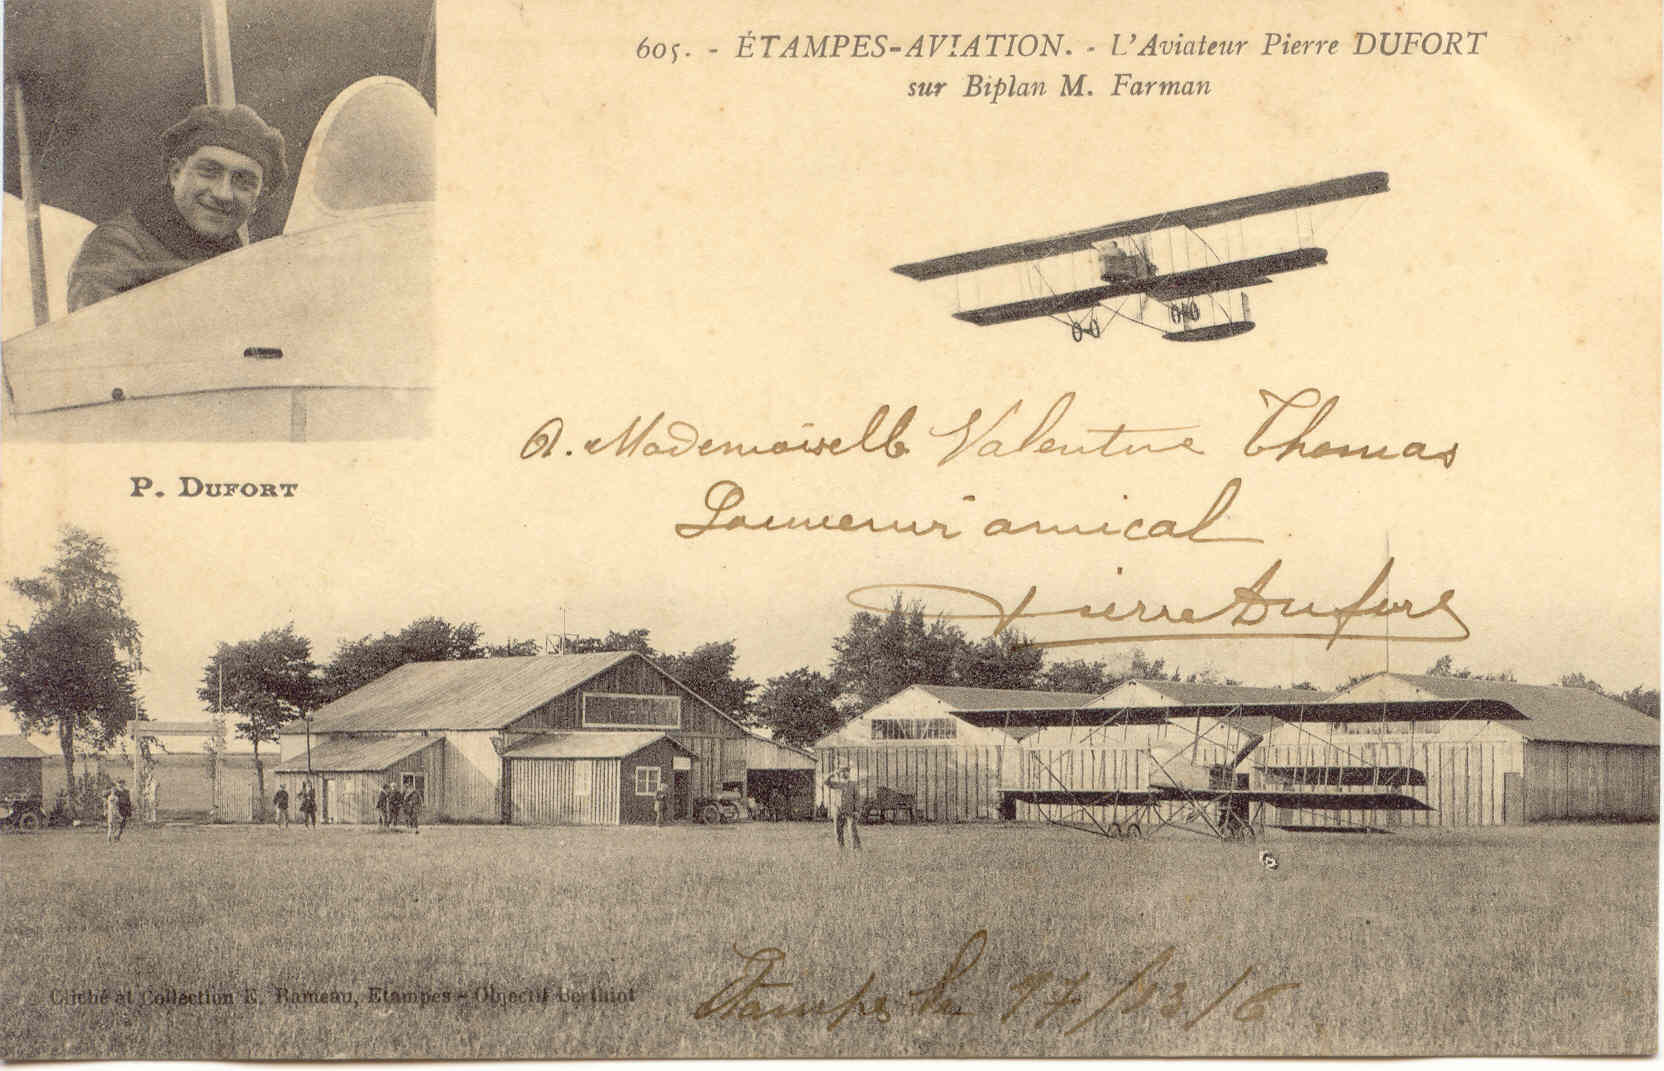 605. - ÉTAMPES-AVIATION. - L'Aviateur Pierre DUFORT
sur Biplan M. Farman
A. Mademoiselle Valentine Thomas
Souvenir amical
Pierre Dufort
P. DUFORT
Cliché et Collection E. Rameau, Etampes - Objectif Berthiot
Etampes le